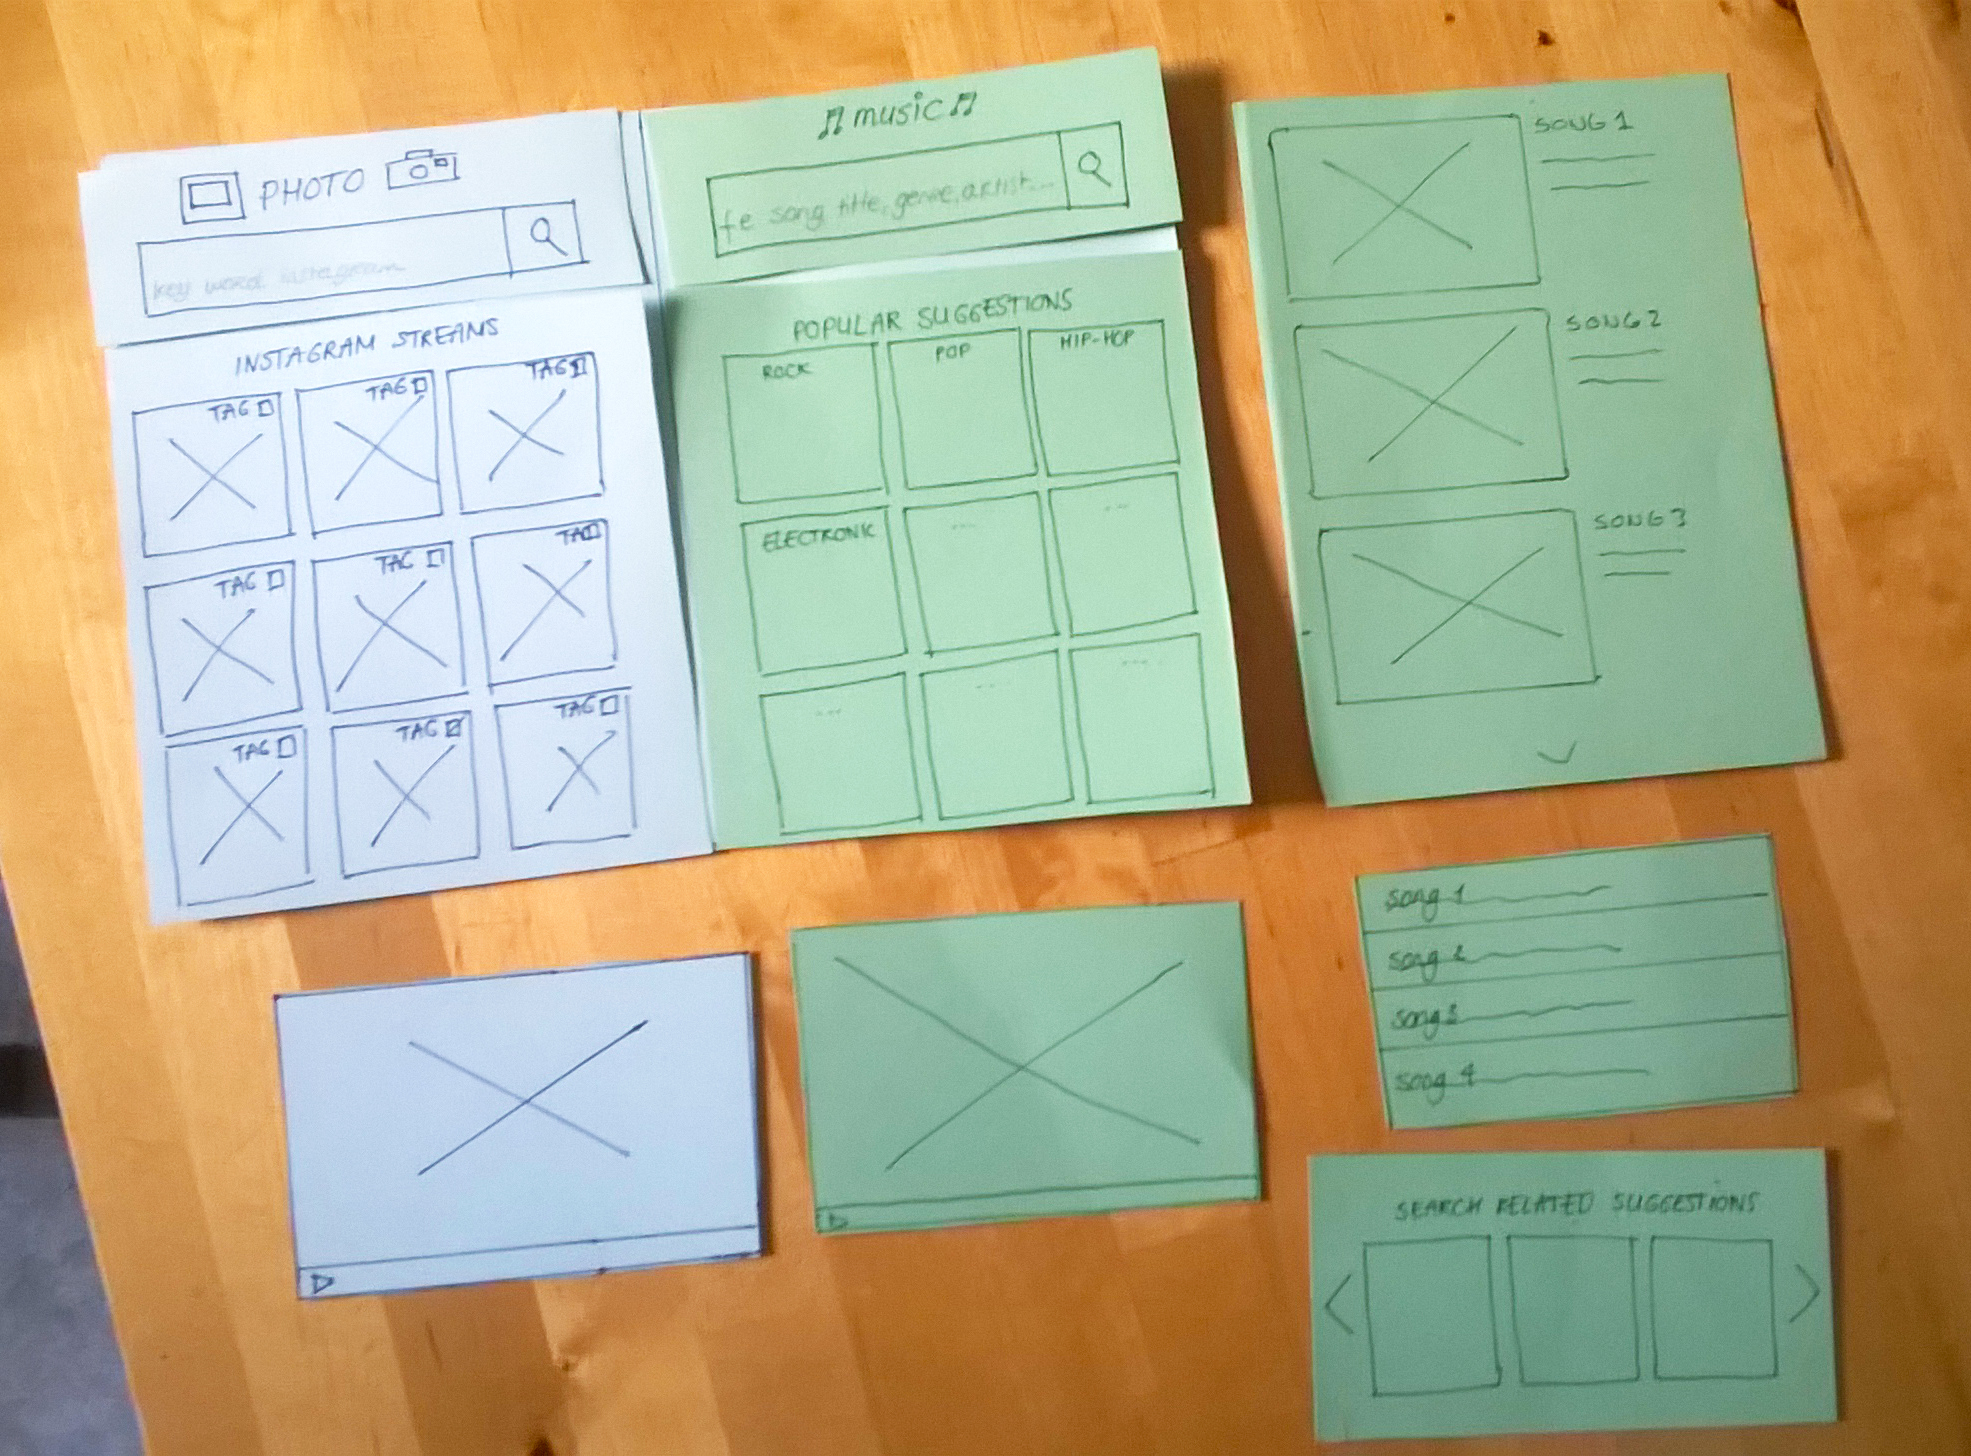 PHOTO
key word instagram
INSTAGRAM STREAMS
TAG TAG TAG
TAG TAG TAG
TAG TAG TAG
music
fe song title, genre, artist...
POPULAR SUGGESTIONS
ROCK POP HIP-HOP
ELECTRONIC ... ...
... ... ...
SONG 1
SONG 2
SONG 3
song 1
song 2
song 3
song 4
SEARCH RELATED SUGGESTIONS